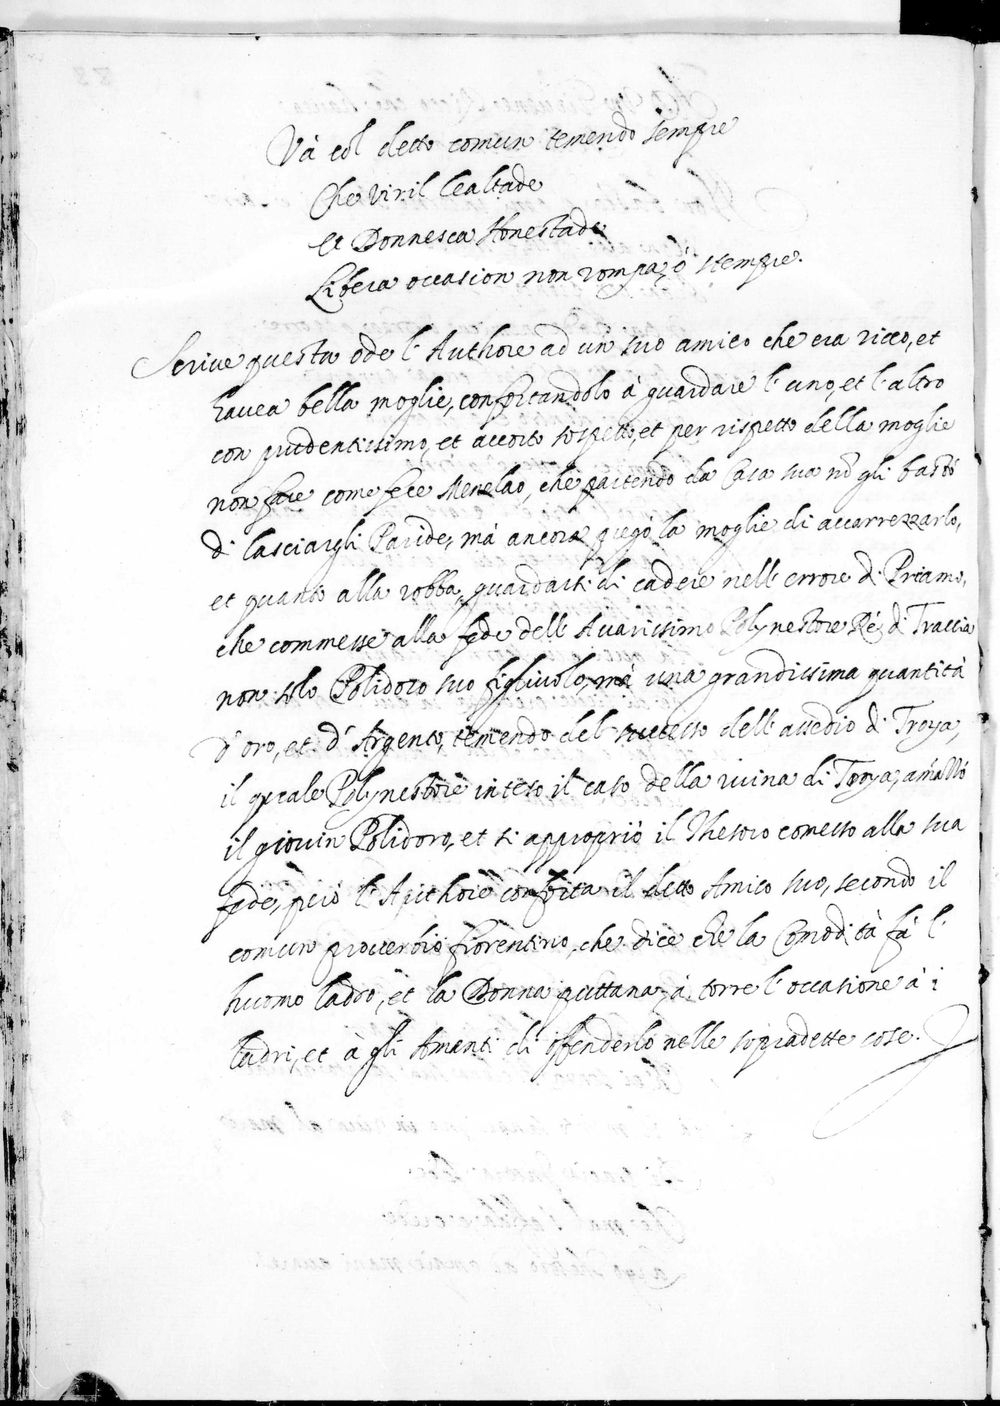 Và col detto comun temendo sempre
Che viril lealtade
et Donnesca Honestade
Libera occasion non rompa, ò stempre.
Scriue questa ode l' Authore ad un suo amico che era ricco, et
hauea bella moglie, confortandolo à guardare l' uno, et l' altro
con prudentissimo, et accorto sospetto, et per rispetto della moglie
non fare come fece Menelao, che partendo da casa sua nō gli bastò
di lasciargli Paride, mà ancora pregò la moglie di accarrezzarlo,
et quanto alla robba, guardarsi di cadere nell' errore di Priamo,
che commesse alla fede dell' Auarissimo Polynestore Rè di Traccia
non solo Polidoro suo figliuolo, mà una grandissima quantità
d' oro, et d' Argento, temendo del successo dell' assedio di Troya,
il quale Polynestore inteso il caso della ruina di Troya, amazzò
il giouin Polidoro, et si appropriò il Thesoro comesso alla sua
fede, però l' Authore conforta il detto Amico suo, secondo il
comun prouerbio fiorentino, che dice che la Comodità fà l'
huomo ladro, et la Donna puttana, à torre l' occasione à i
ladri, et à gli Amanti di offenderlo nelle sopradette cose.